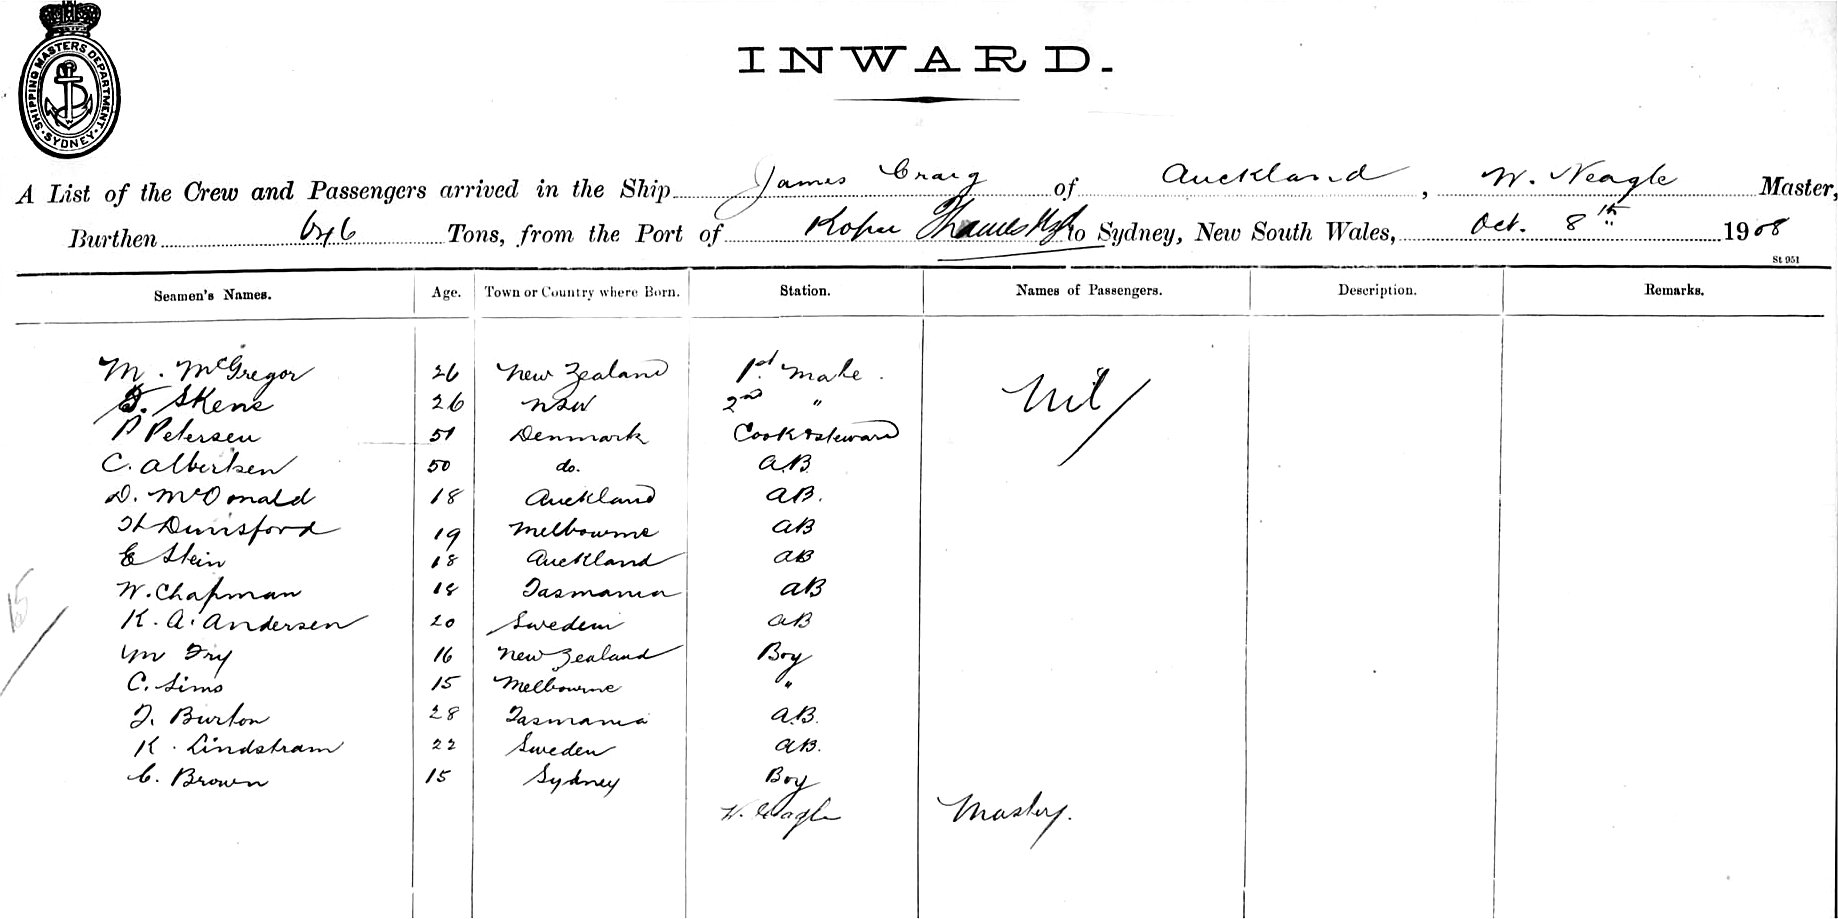 SHIPPING MASTERS DEPARTMENT
SYDNEY
INWARD.
A List of the Crew and Passengers arrived in the Ship James Craig of Auckland, W. Neagle Master,
Burthen 646 Tons, from the Port of Thames NZ to Sydney, New South Wales, Oct. 8th 1908
St 951
Seamen's Names. Age. Town or Country where Born. Station. Names of Passengers. Description. Remarks.
M. McGregor 26 New Zealand 1st Mate. Nil
Skene 26 NSW 2nd "
P Petersen 51 Denmark Cook & Steward
C. Albertsen 50 do. A.B.
D. McDonald 18 Auckland AB.
Dunsford 19 Melbourne AB
E Stein 18 Auckland AB
W. Chapman 18 Tasmania AB
K. A. Andersen 20 Sweden AB
Wm Fry 16 New Zealand Boy
C. Sims 15 Melbourne "
15
T. Burton 28 Tasmania A.B.
K. Lindstram 22 Sweden AB.
C. Brown 15 Sydney Boy
W. Neagle Master.